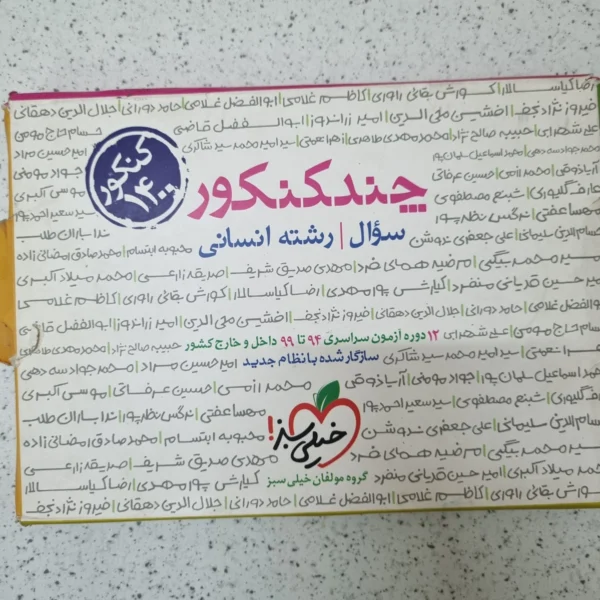 رضا کیاسالار | کورش بقائی راوری | کاظم غلامی | ابوالفضل غلامی | حامد دورانی | جلال الدین دهقانی
فیروز نژادنجف | افشین ملی الدین | امیر زراندوز | ابوالفضل قاضی
علی شهرابی | حبیبه صالح نژاد | محمدمهدی طاهری | زهرا نعمتی | سید امیر محمد سید شاکری
حسام حاج مومی
امیرحسین مراد
محمدجواد سه دهی | محمد اسماعیل سلمان پور
جواد مومنی
آریا ذوقی | محمد رزمی | حسین عرفاتی
موسی اکبری
عارف گلپوری | شبنم مصطفوی
سید سعید احمدپور
مهسا عفتی | نرگس نظرپور
ندا باران طلب
کنکور
۱۴۰۰
چند کنکور
سؤال | رشته انسانی
حسام الدین سلیمانی | علی جعفری ندوشن
محبوبه ابتسام | محمدصادق رمضانی زاده
امیر محمد بیگی | مرضیه همای فرد | مهدی صدیق شریف | صدیقه زارعی | محمد میلاد اکبری
امیر حسین قدیانی منفرد | کیارش پورمهدی | رضا کیاسالار | کورش بقائی راوری | کاظم غلامی
ابوالفضل غلامی | حامد دورانی | جلال الدین دهقانی | فیروز نژادنجف | افشین ملی الدین | امیر زراندوز | ابوالفضل قاضی
حسام حاج مومی | علی شهرابی
۱۲ دوره آزمون سراسری ۹۴ تا ۹۹ داخل و خارج کشور
حبیبه صالح نژاد | محمدمهدی طاهری
زهرا نعمتی | سید امیر محمد سید شاکری
سازگار شده با نظام جدید
امیرحسین مراد | محمدجواد سه دهی
محمد اسماعیل سلمان پور | جواد مومنی | آریا ذوقی | محمد رزمی | حسین عرفاتی | موسی اکبری
عارف گلپوری | شبنم مصطفوی | سید سعید احمدپور
مهسا عفتی | نرگس نظرپور | ندا باران طلب
حسام الدین سلیمانی | علی جعفری ندوشن
محبوبه ابتسام | محمدصادق رمضانی زاده
خیلی سبز!
امیر محمد بیگی | مرضیه همای فرد
مهدی صدیق شریف | صدیقه زارعی
محمد میلاد اکبری | امیر حسین قدیانی منفرد
گروه مولفان خیلی سبز
کیارش پورمهدی | رضا کیاسالار
کورش بقائی راوری | کاظم غلامی | ابوالفضل غلامی | حامد دورانی | جلال الدین دهقانی | فیروز نژادنجف